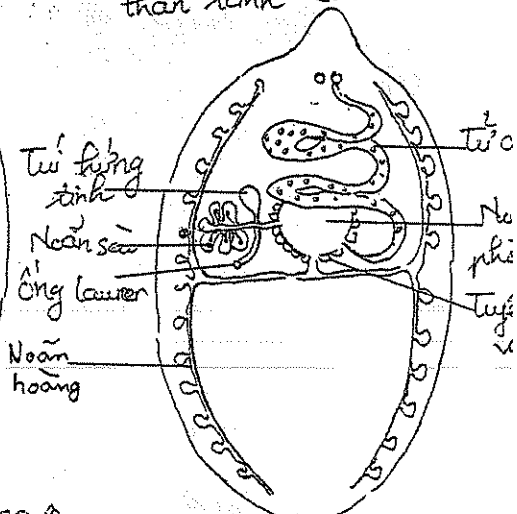 thân sinh
Túi hứng
tinh
Noãn sào
ống laurer
Noãn
hoàng
Tử c
No
phò
Tuyế
vo